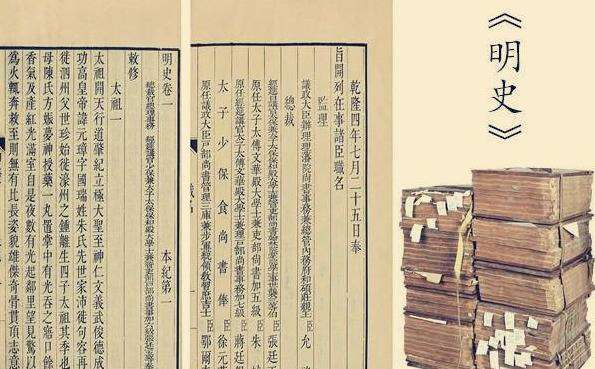 《明史》
乾隆四年七月二十五日奉
旨開列在事諸臣職名
監理
議政大臣辦理理藩院尚書事務兼總管內務府和碩莊親王臣允
總裁
張廷
原任太子太傅文華殿大學士兼吏部尚書加五級臣朱
臣蔣廷
太子少保食尚書俸臣徐元
原任議政大臣戶部尚書管理三庫兼步軍統領教習庶吉士臣鄂爾
明史卷一
敕修
本紀第一
太祖一
太祖開天行道肇紀立極大聖至神仁文義武俊德成
功高皇帝諱元璋字國瑞姓朱氏先世家沛徙句容再
徙泗州父世珍始徙濠州之鍾離生四子太祖其季也
母陳氏方娠夢神授藥一丸置掌中有光吞之寤口餘
香氣及產紅光滿室自是夜數有光起鄰里望見驚以
爲火輒奔救至則無有比長姿貌雄傑奇骨貫頂志意